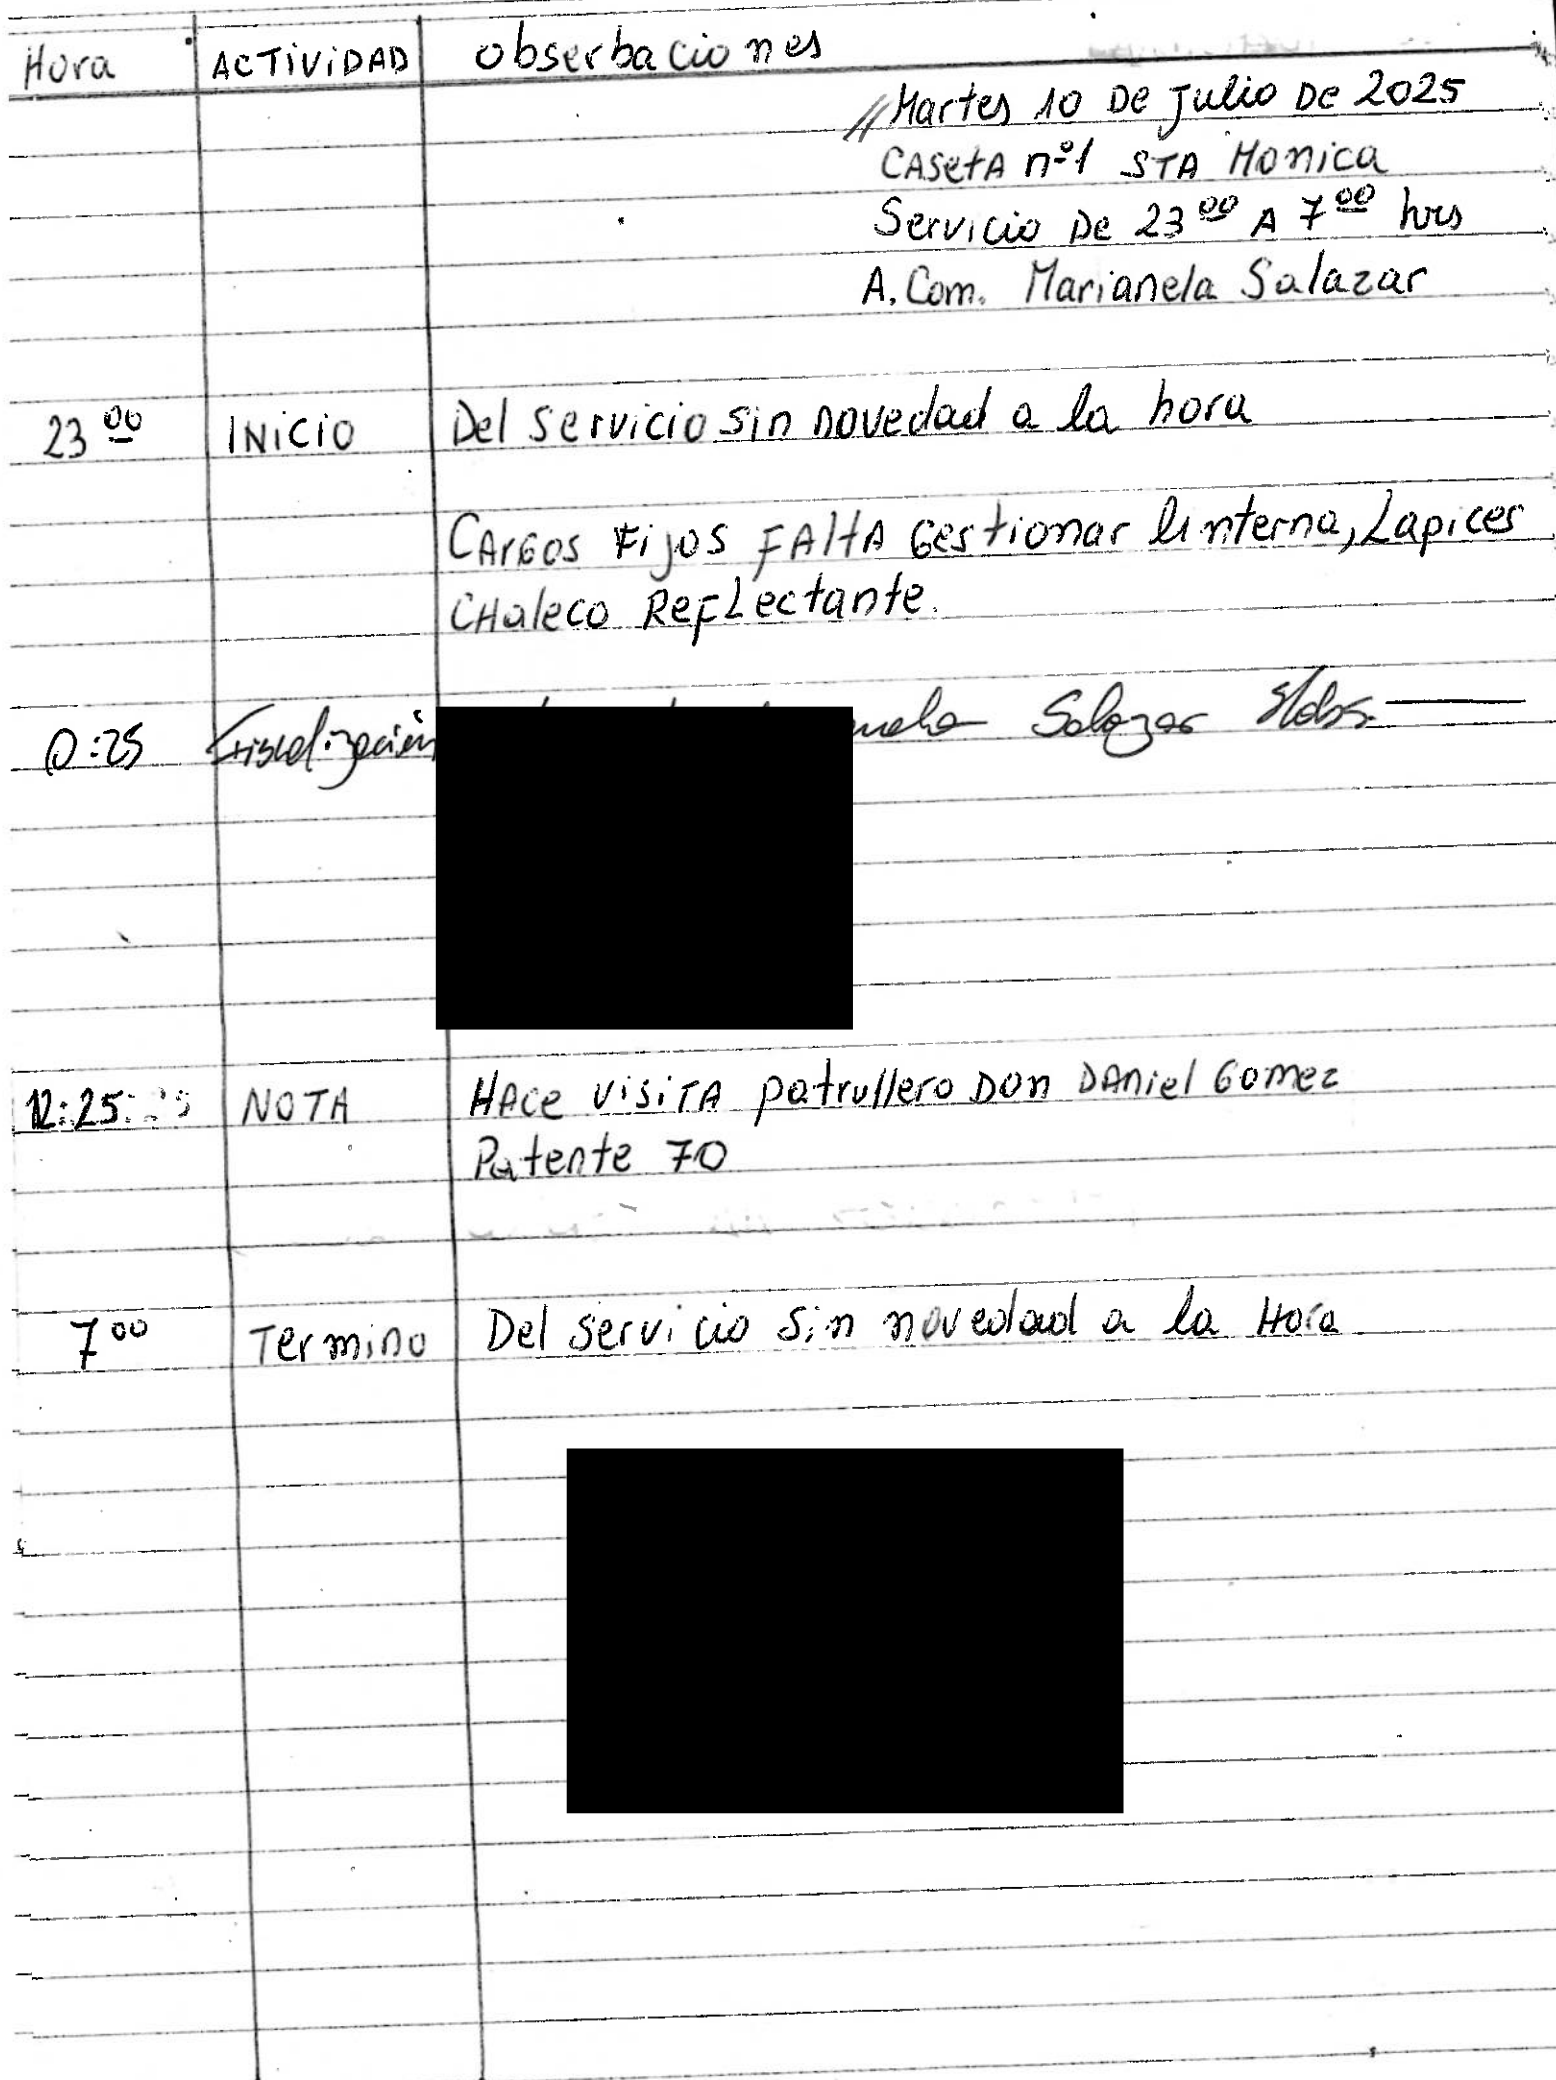 Hora ACTIVIDAD obserbaciones
Martes 10 De Julio De 2025
CASetA nº1 STA Monica
Servicio De 23 00 A 7 00 hrs
A. Com. Marianela Salazar
23 00 INICIO Del servicio sin novedad a la hora
CArGos Fijos FAltA Gestionar linterna, Lapices
CHaleco ReFLectante.
0:25 Fiscalización Salazar
12:25 NOTA HAce visiTA patrullero Don DAniel Gomez
Patente 70
7 00 Termino Del servicio sin novedad a la Hora